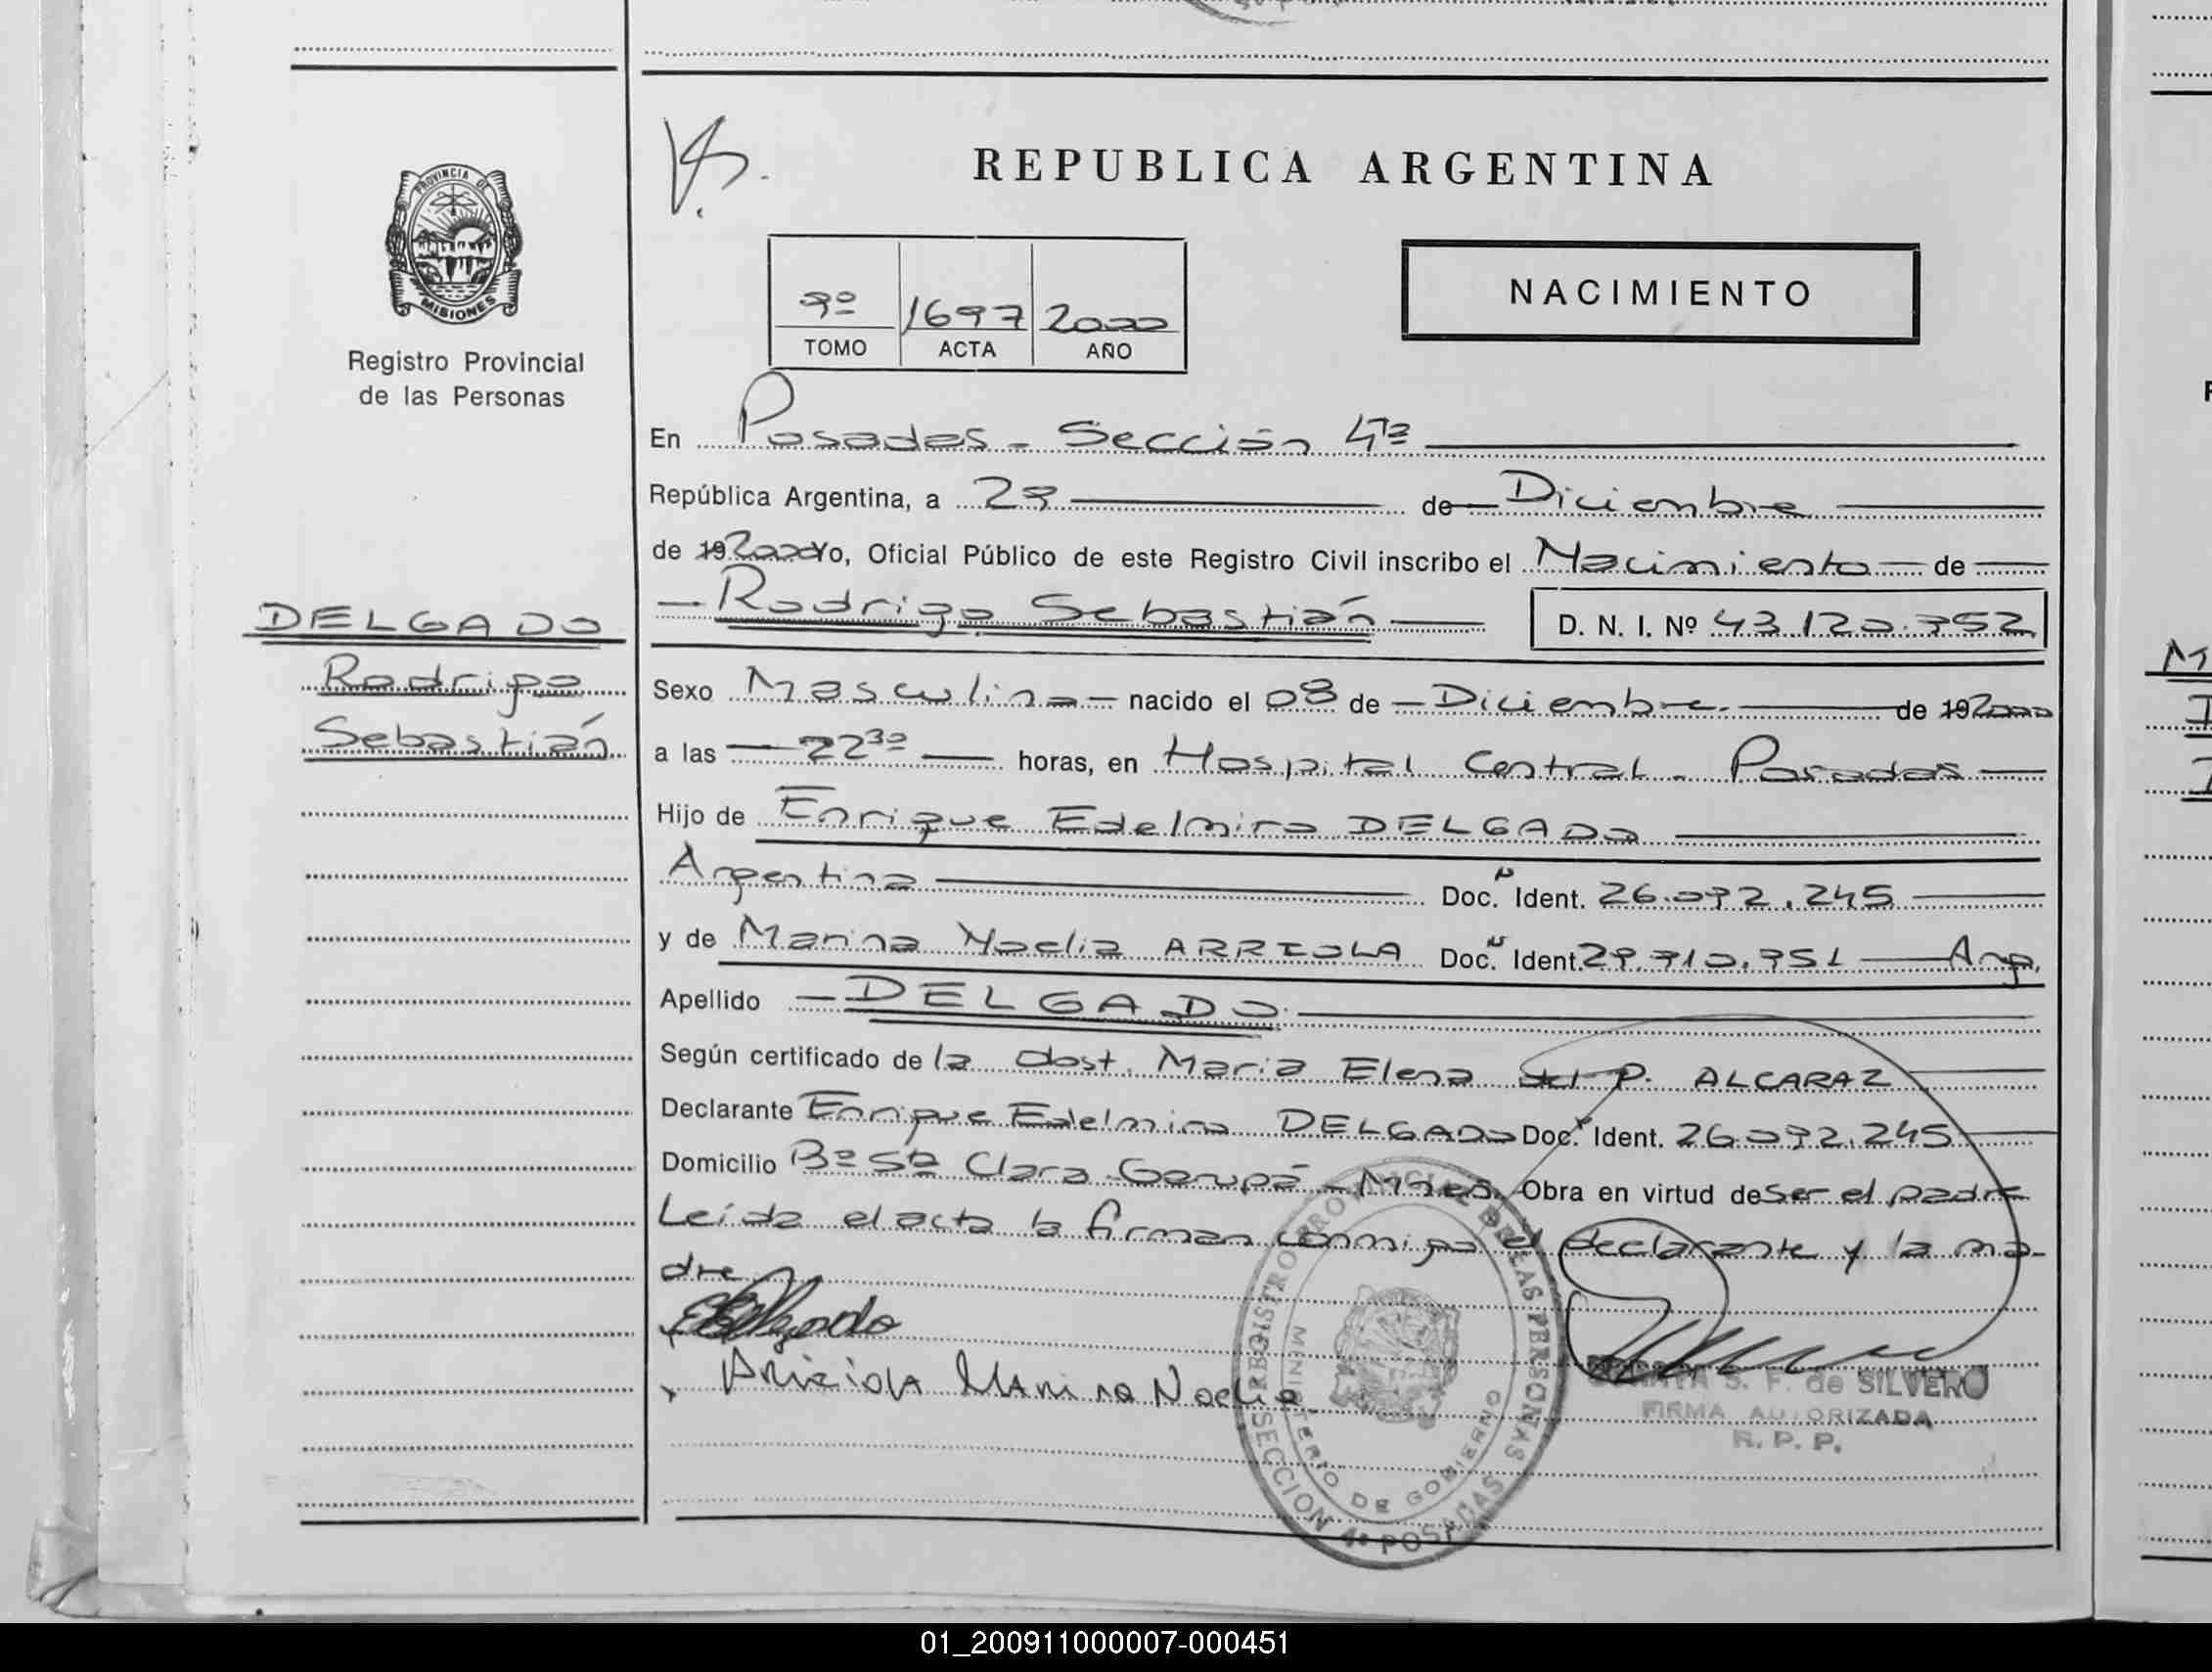 REPUBLICA ARGENTINA
PROVINCIA DE
MISIONES
Registro Provincial
de las Personas
NACIMIENTO
9º 1697 2000
TOMO ACTA AÑO
En Posadas - Sección 4ta
República Argentina, a 29 de Diciembre
de 19 2000 Yo, Oficial Público de este Registro Civil inscribo el Nacimiento de
Rodrigo Sebastián D. N. I. Nº 43.120.352
DELGADO
Rodrigo
Sebastián
Sexo Masculino nacido el 08 de Diciembre de 19 2000
a las 22 30 horas, en Hospital Central - Posadas
Hijo de Enrique Edelmiro DELGADO
Argentino Doc. N Ident. 26.092.245
y de Marina Noelia ARRIOLA Doc. N Ident. 29.910.951 Arg.
Apellido DELGADO
Según certificado de la obst. Maria Elena del P. ALCARAZ
Declarante Enrique Edelmiro DELGADO Doc. N Ident. 26.092.245
Domicilio Bº Sta Clara - Garupá - Mnes. Obra en virtud de ser el padre
Leída el acta la firman conmigo el declarante y la ma-
dre
EDelgado
Arriola Marina Noelia
REGISTRO PROVINCIAL DE LAS PERSONAS
MINISTERIO DE GOBIERNO
SECCION 4ª POSADAS
S. F. de SILVERO
FIRMA AUTORIZADA
R. P. P.
01_200911000007-000451